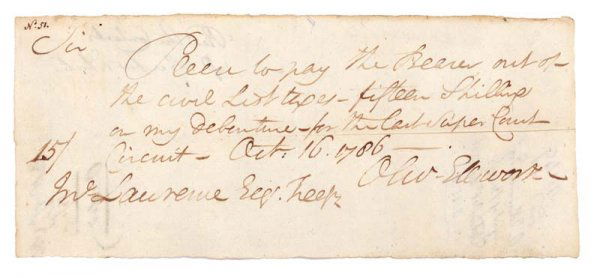 No. 51.
Sir
Please to pay the Bearer out of
the civil List taxes - fifteen Shillings
on my debenture - for the last Super Court
15/ Circuit - Oct. 16. 1786 -
Jno. Lawrence Esqr. Treasr. Olivr. Ellsworth